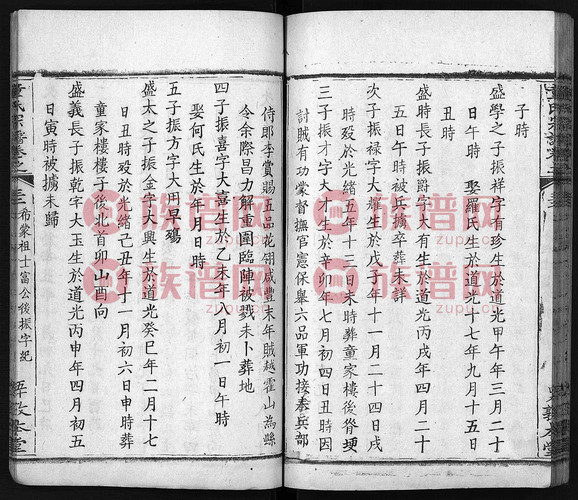 子時
盛學之子振祥字有珍生於道光甲午年三月二十
日午時 娶羅氏生於道光十七年九月十五日
丑時
盛時長子振爵字大有生於道光丙戌年四月二十
五日辰時被兵擄卒葬未詳
次子振祿字大耀生於戊子年十一月二十四日戌
時殁於光緒五年十二日未時葬童家樓後脊埂
三子振才字大才生於辛卯年七月初四日丑時因
討賊有功蒙督撫官憲保舉六品軍功接奉兵部
侍郎李賞賜五品花翎咸豐末年賊越霍山為縣
令余際昌力解重圍臨陣被戕未卜葬地
四子振喜字大喜生於乙未年八月初一日午時
娶何氏生於年月日時
五子振方字大川早殤
盛太之子振金字大興生於道光癸巳年二月十七
日丑時殁於光緒己丑年十一月初六日申時葬
童家樓樓子後北首卯山酉向
盛義長子振乾字大玉生於道光丙申年四月初五
日寅時被擄未歸
童氏宗譜卷之
三
希蒙祖士富公後振字紀
敦本堂
族谱网
zupu.cn
族谱网
zupu.cn
族谱网
zupu.cn
族谱网
zupu.cn